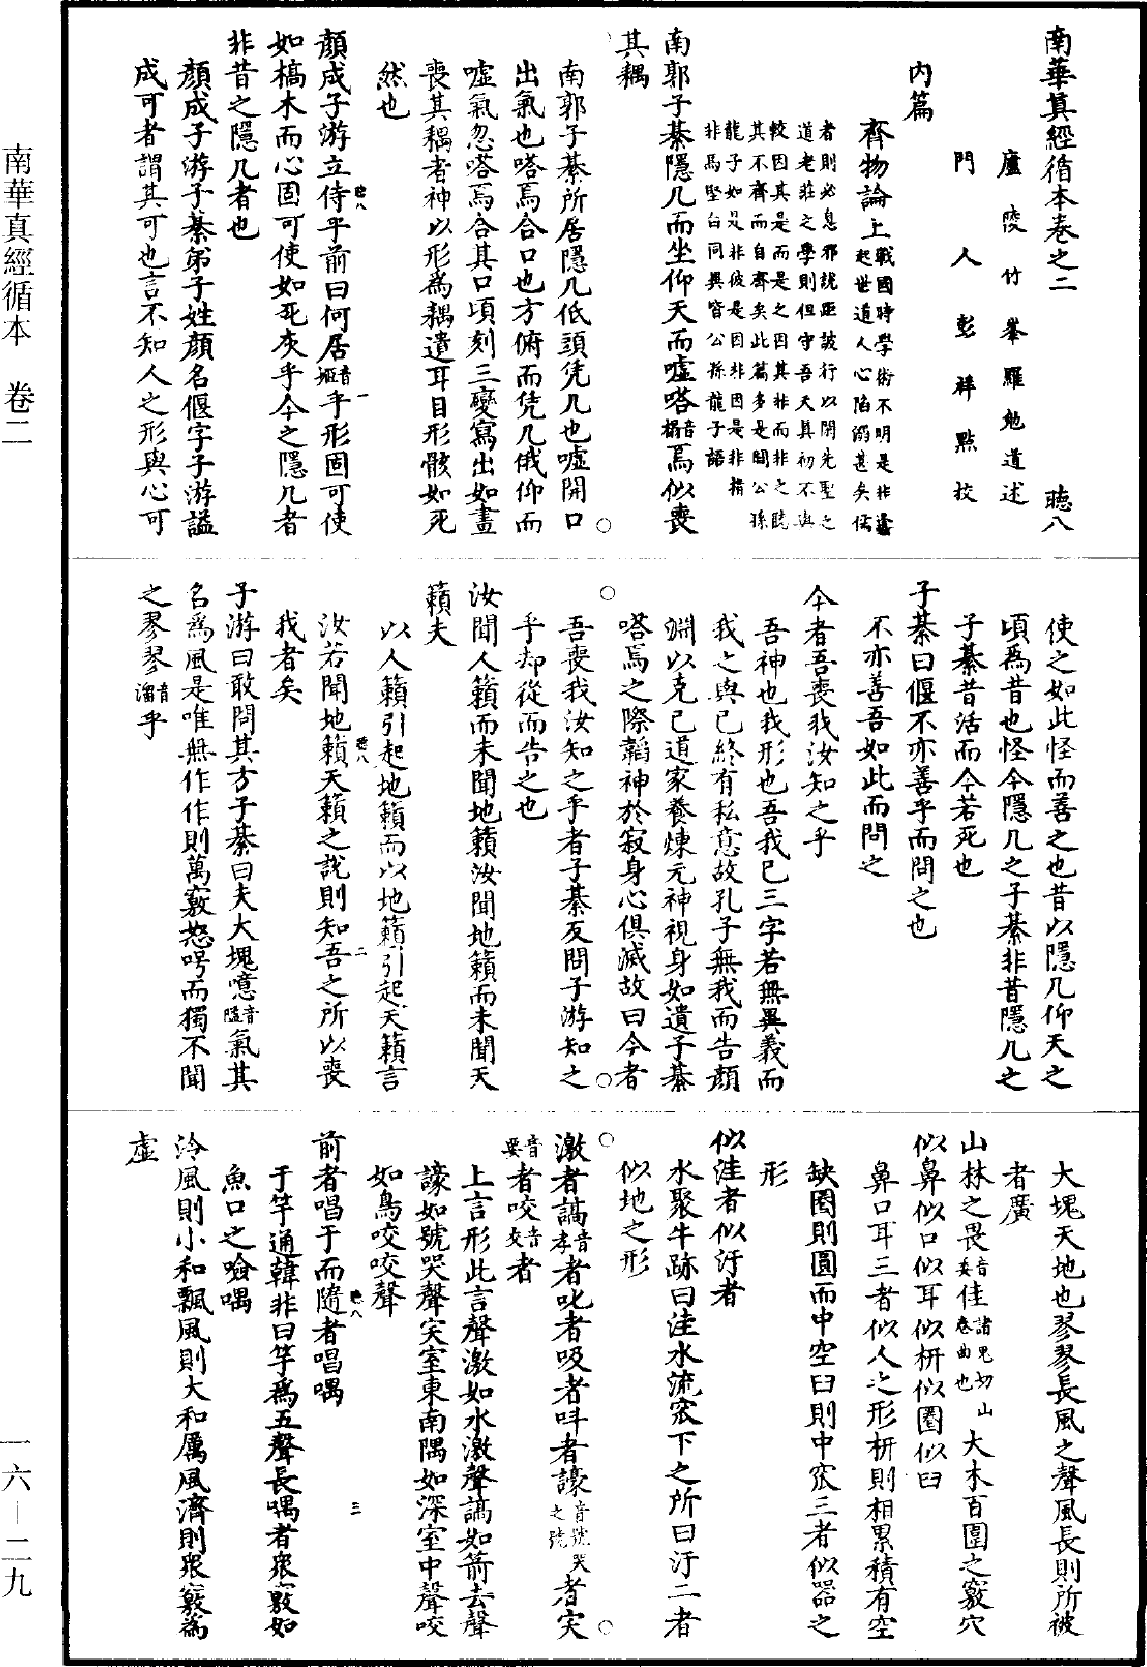 南華真經循本卷之二 聴八
廬陵竹峯羅勉道述
門人彭祥點校
內篇
齊物論上戰國時學術不明是非
起世道人心陷溺甚矣儒
者則必息邪說距詖行以閑先聖之
道老莊之學則但守吾天真初不與
較因其是而是之因其非而非之聴
其不齊而自齊矣此篇多是闢公孫
龍子如是非彼是因非因是非指
非馬堅白同異皆公孫龍子語
南郭子綦隱几而坐仰天而噓嗒音榻焉似喪
其耦
南郭子綦所居隱几低頭凭几也噓開口
出氣也嗒焉合口也方俯而凭几俄仰而
噓氣忽嗒焉合其口頃刻三變寫出如畫
喪其耦者神以形為耦遺耳目形骸如死
然也
顏成子游立侍乎前曰何居音姬乎形固可使
如槁木而心固可使如死灰乎今之隱几者
非昔之隱几者也
顏成子游子綦弟子姓顏名偃字子游謚
成可者謂其可也言不知人之形與心可
使之如此怪而善之也昔以隱几仰天之
頃為昔也怪今隱几之子綦非昔隱几之
子綦昔活而今若死也
子綦曰偃不亦善乎而問之也
不亦善吾如此而問之
今者吾喪我汝知之乎
吾神也我形也吾我已三字若無異義而
我之與己終有私意故孔子無我而告顏
淵以克己道家養煉元神視身如遺子綦
嗒焉之際韜神於寂身心俱滅故曰今者
吾喪我汝知之乎者子綦反問子游知之
乎却從而告之也
汝聞人籟而未聞地籟汝聞地籟而未聞天
籟夫
以人籟引起地籟而以地籟引起天籟言
汝若聞地籟天籟之說則知吾之所以喪
我者矣
子游曰敢問其方子綦曰夫大塊噫音隘氣其
名為風是唯無作作則萬竅怒呺而獨不聞
之翏翏音溜乎
大塊天地也翏翏長風之聲風長則所被
者廣
山林之畏音隈佳諸鬼切山
卷曲也大木百圍之竅穴
似鼻似口似耳似枅似圈似臼
鼻口耳三者似人之形枅則相累積有空
缺圈則圓而中空臼則中窊三者似器之
形
似洼者似汙者
水聚牛跡曰洼水流窊下之所曰汙二者
似地之形
激者謞音孝者叱者吸者叫者譹音號哭
之號者宎
音要者咬音交者
上言形此言聲激如水激聲謞如箭去聲
譹如號哭聲宎室東南隅如深室中聲咬
如鳥咬咬聲
前者唱于而隨者唱喁
于竽通韓非曰竽為五聲長喁者衆竅如
魚口之噞喁
泠風則小和飄風則大和厲風濟則衆竅為
虛
南華真經循本 卷二
一六—二九